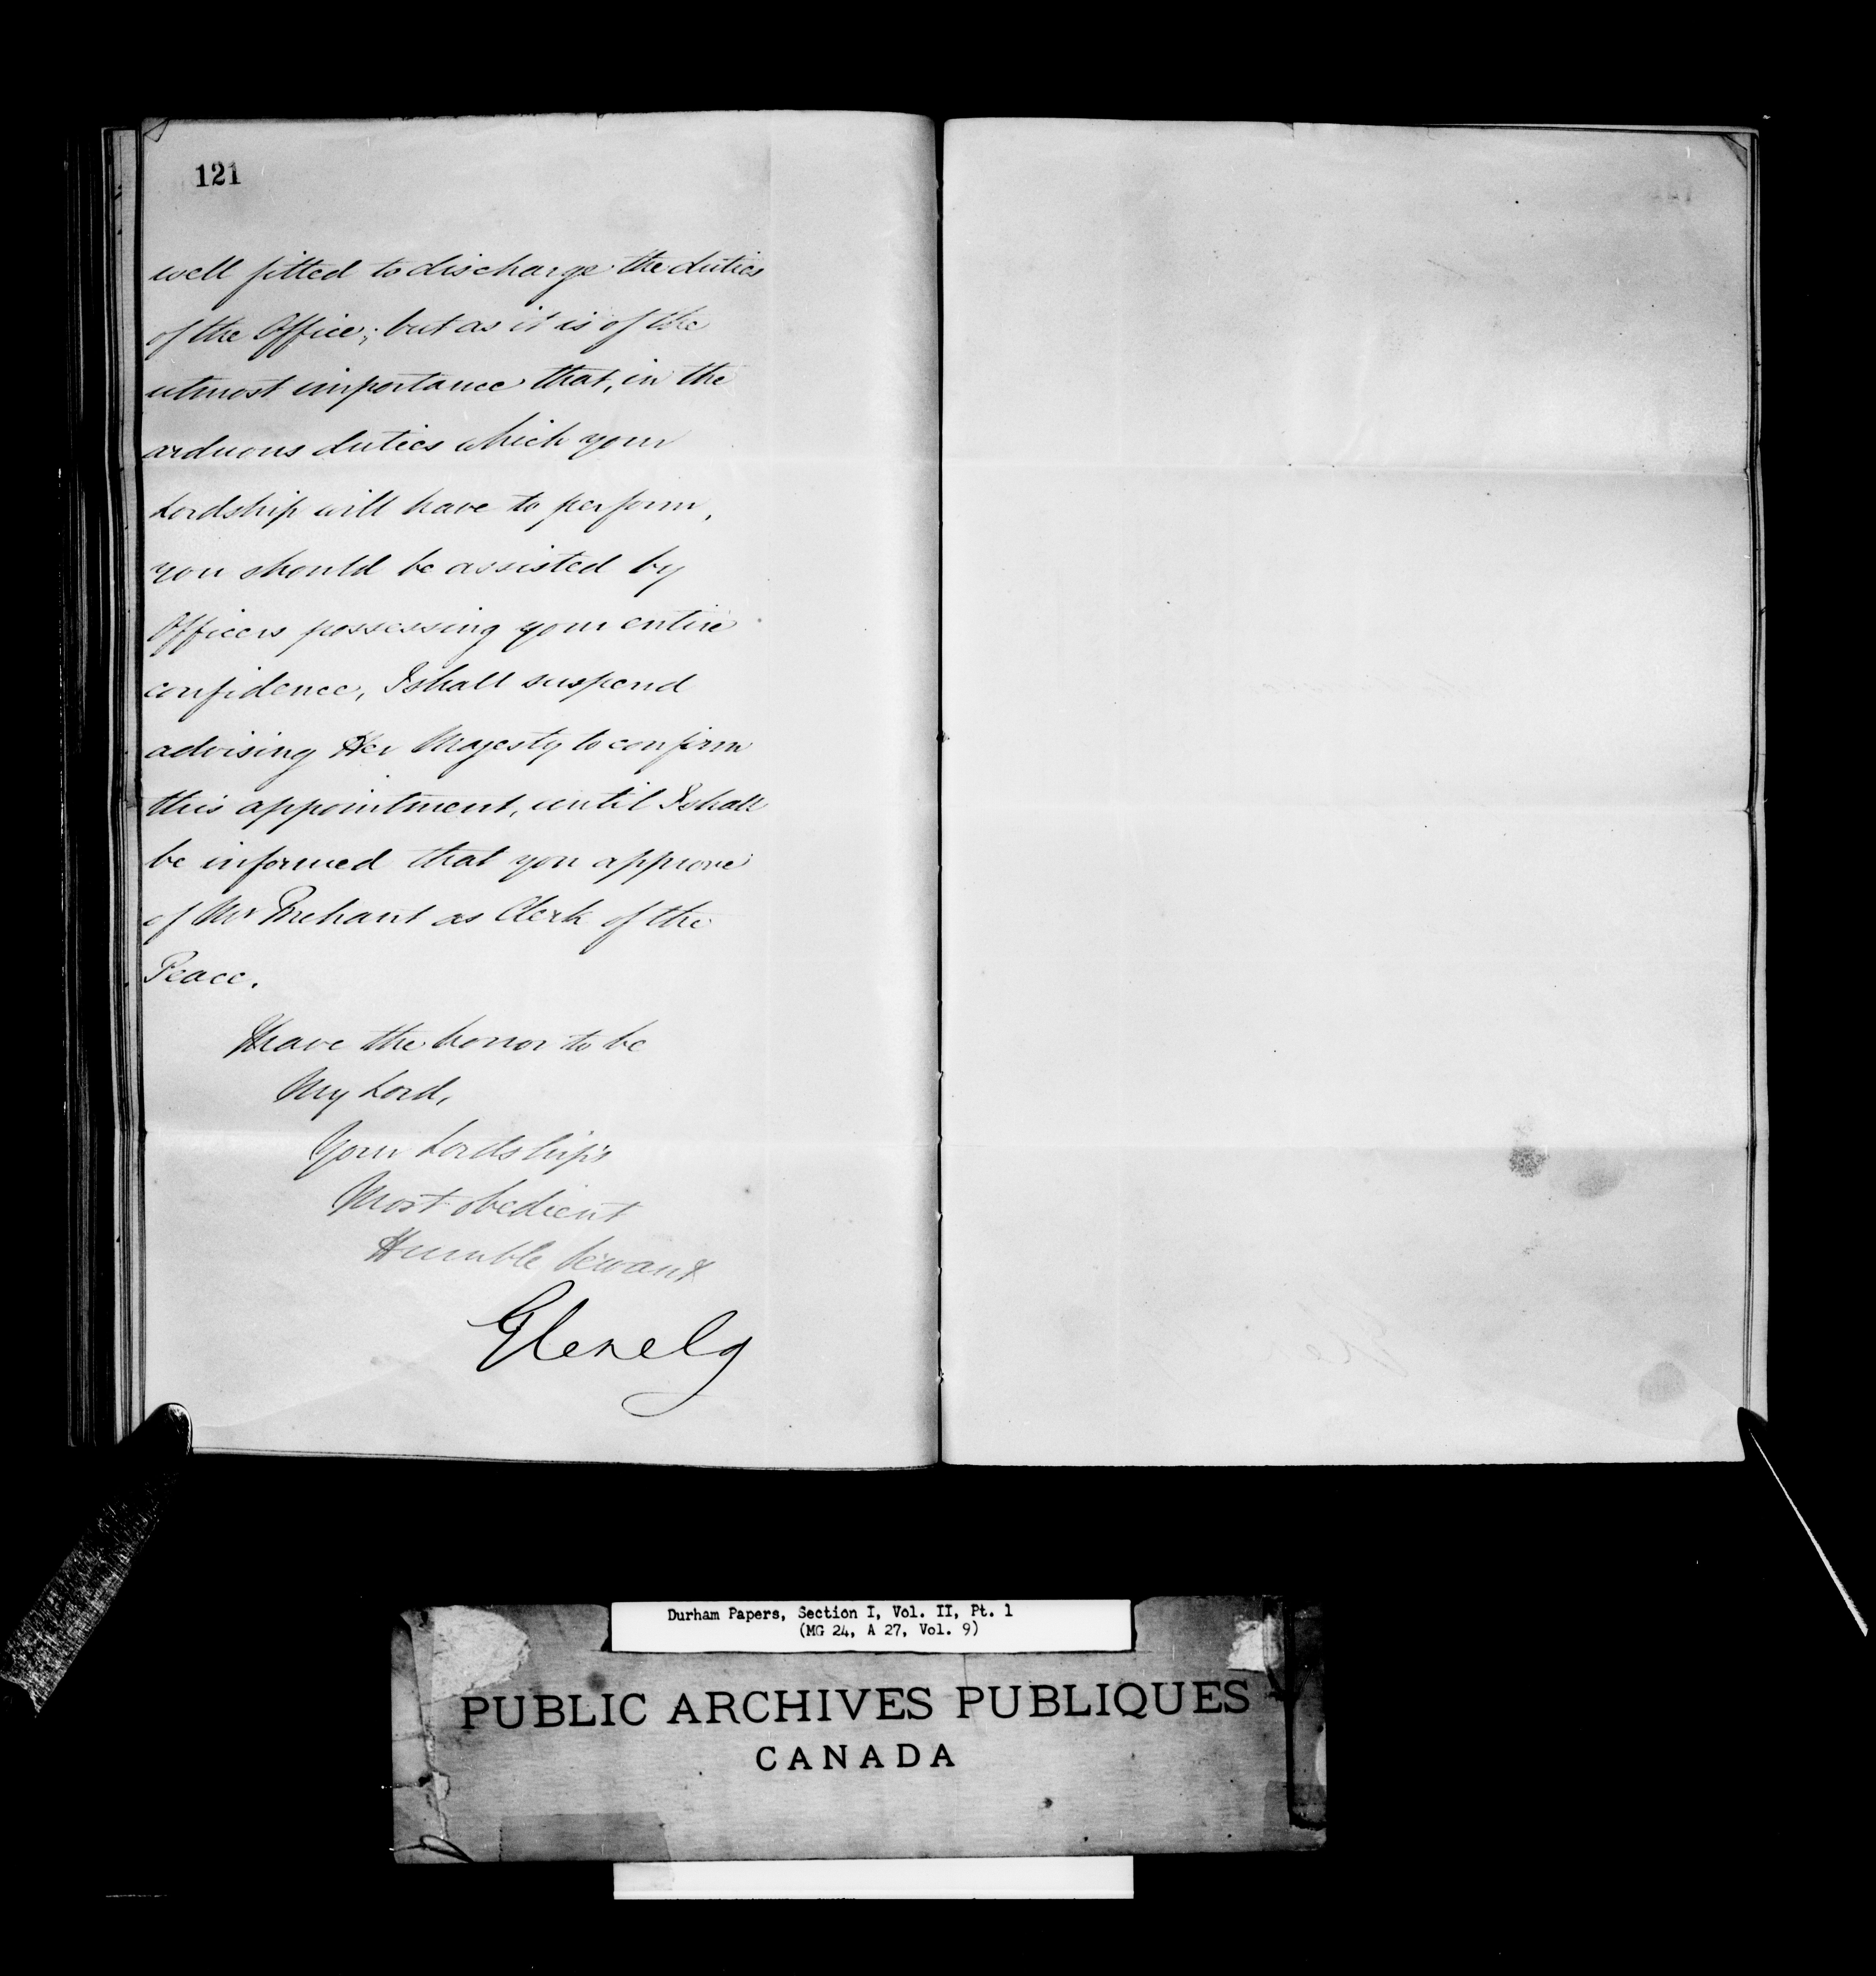 121
well fitted to discharge the duties
of the Office; but as it is of the
utmost importance that, in the
arduous duties which your
Lordship will have to perform,
you should be assisted by
Officers possessing your entire
confidence, I shall suspend
advising Her Majesty to confirm
this appointment, until I shall
be informed that you approve
of Mr as Clerk of the
Peace.
I have the honor to be
My Lord,
Your Lordship's
Most obedient
Humble Servant
Glenelg
Durham Papers, Section I, Vol. II, Pt. 1
(MG 24, A 27, Vol. 9)
PUBLIC ARCHIVES PUBLIQUES
CANADA